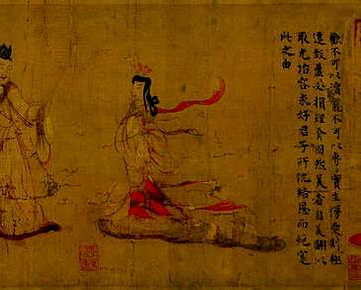 歡不可以瀆寵不可以專實生慢愛則極
遷致盈必損理有固然美者自美翩以
取尤冶容求好君子所仇結恩而絕寔
此之由